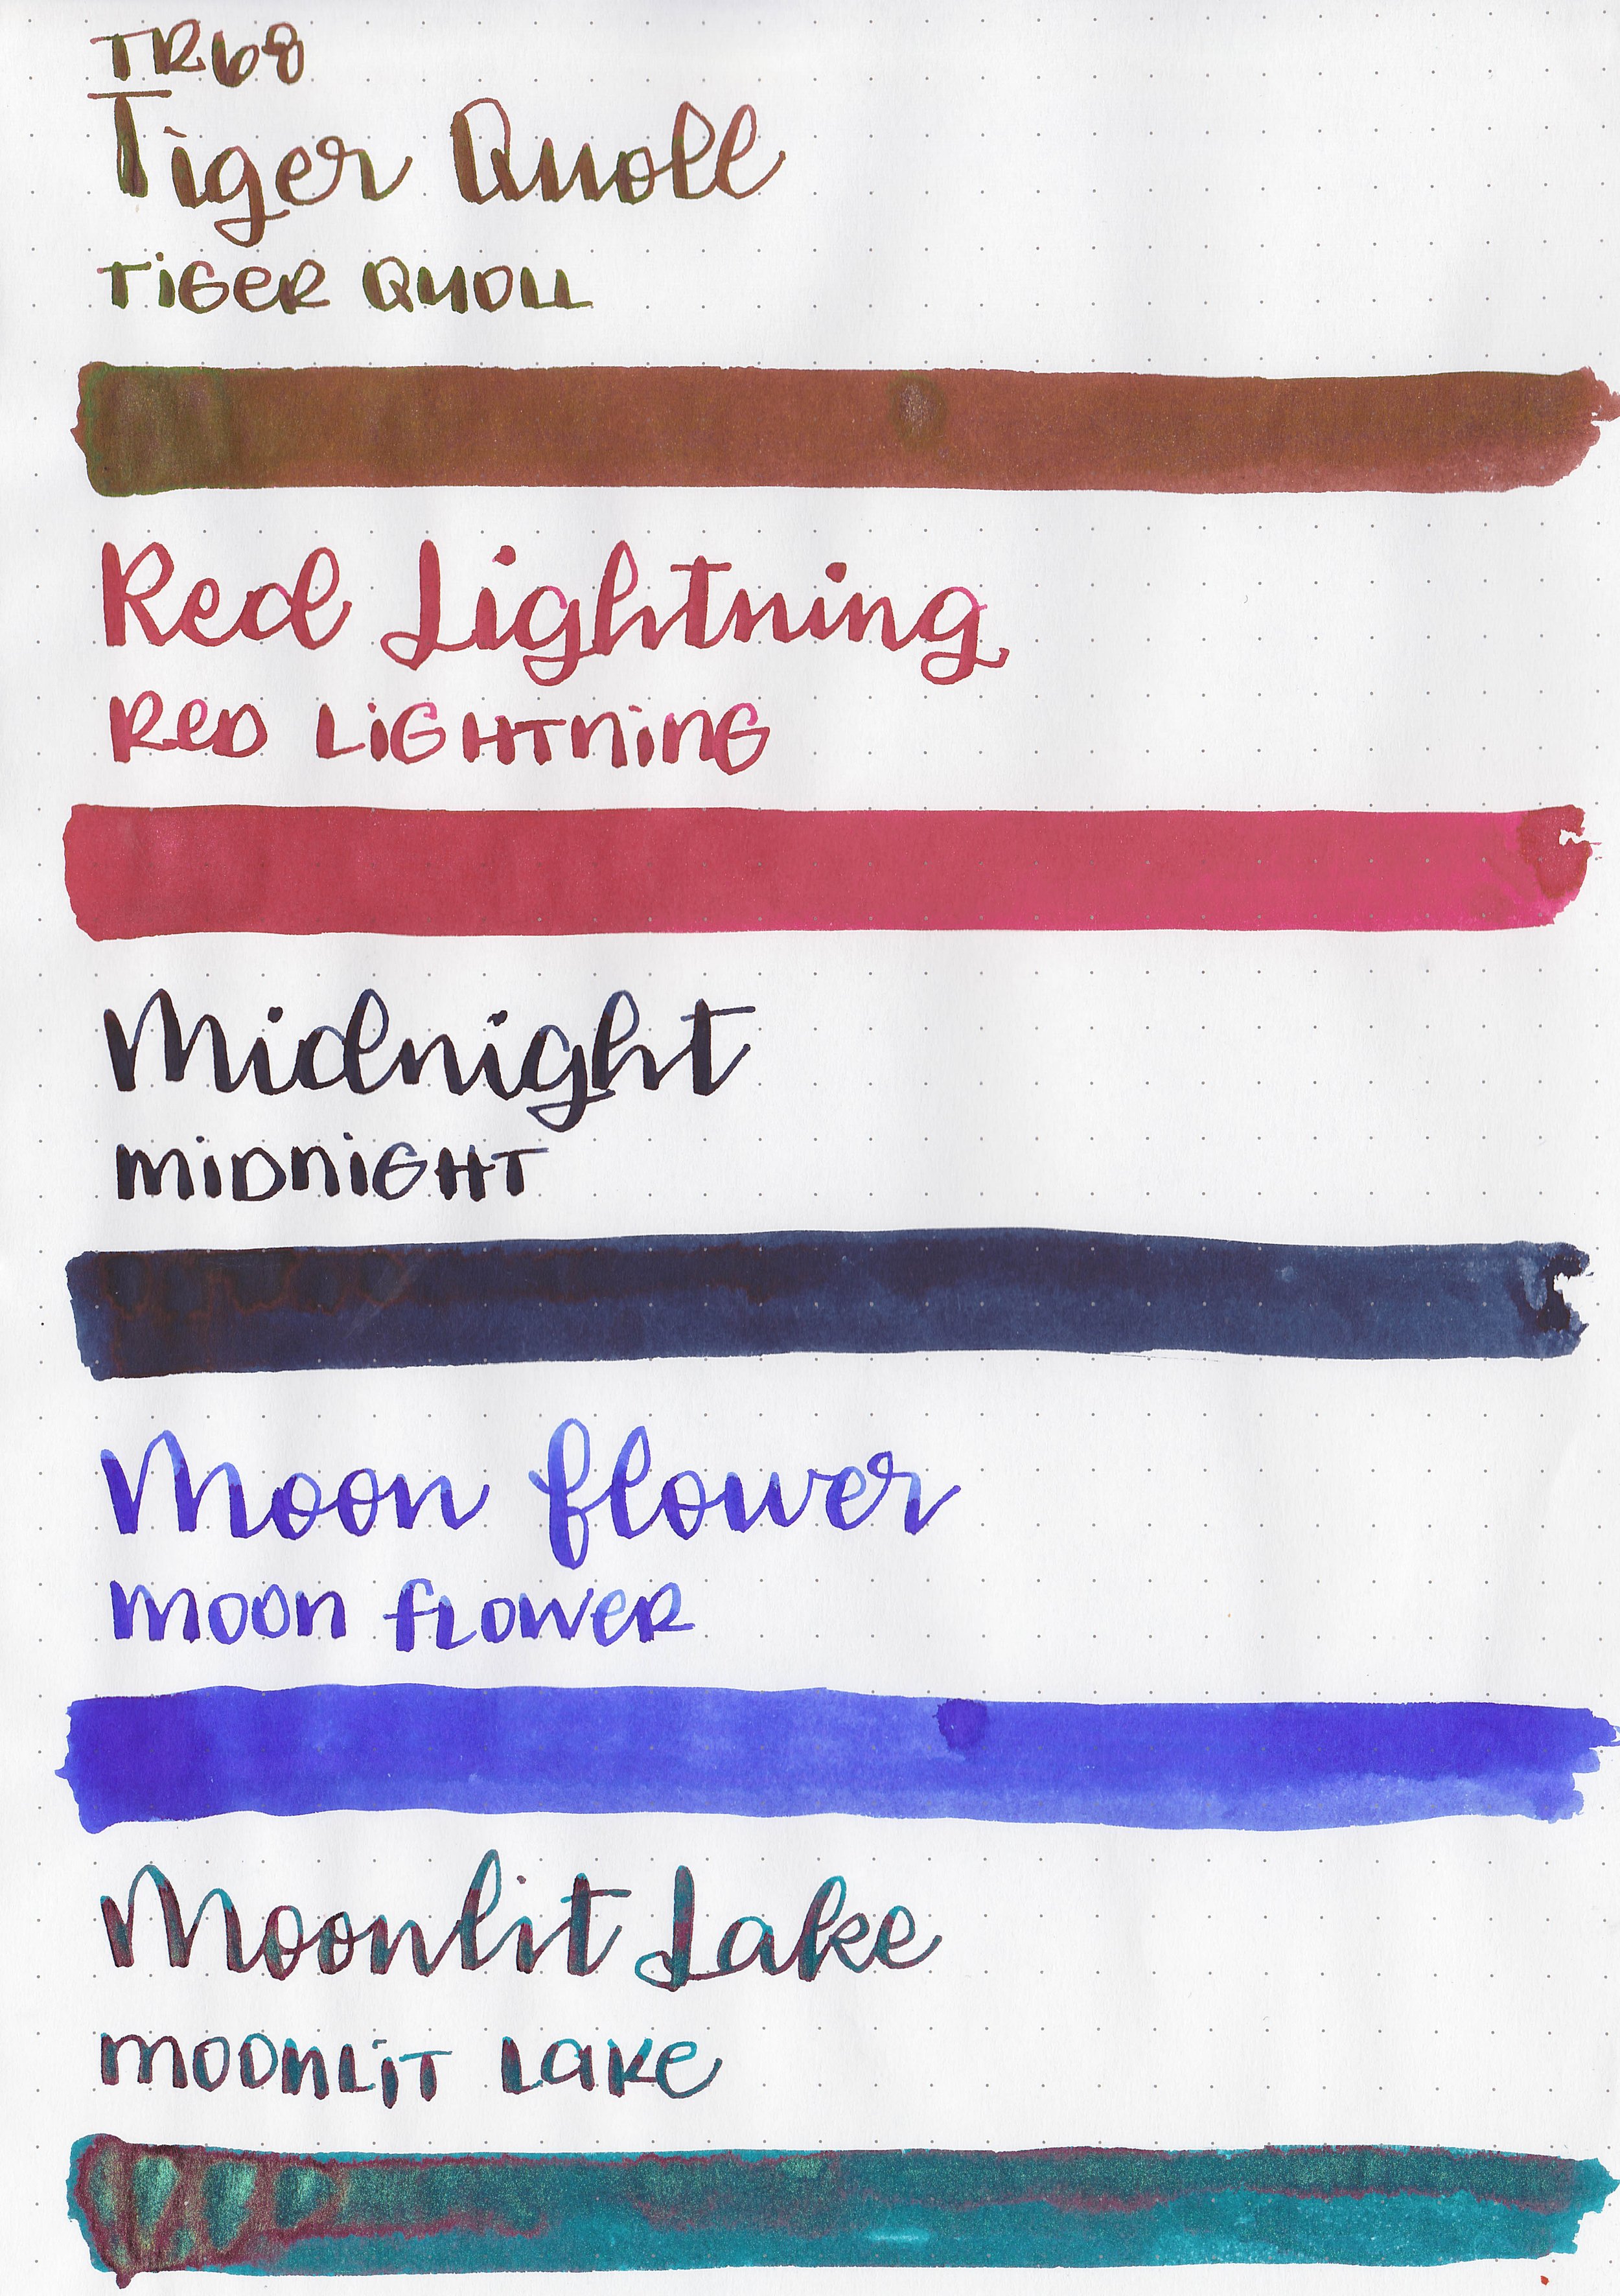 TR68
Tiger Quoll
TiGeR QUOLL
Red Lightning
ReD LiGHTninG
Midnight
miDniGHT
Moon flower
moon fLOWeR
Moonlit Lake
moonLiT Lake